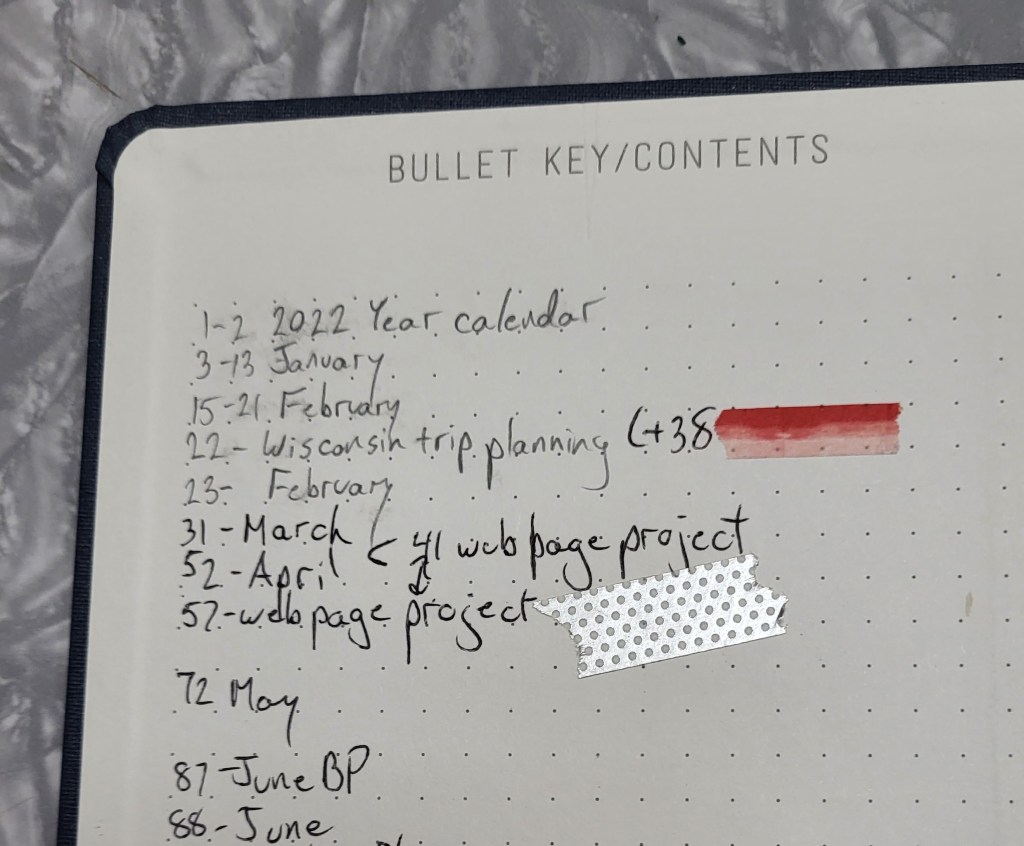 BULLET KEY/CONTENTS
1-2 2022 Year calendar
3-13 January
15-21 February
22- Wisconsin trip planning (+38
23- February
31-March
< 41 webpage project
52-April
57-webpage project
72 May
87-June BP
88-June